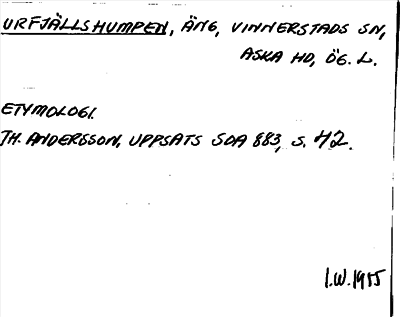 URFJÄLLSHUMPEN, ÄNG, VINNERSTADS SN,
ASKA HD, ÖG. L.
ETYMOLOGI.
TH. ANDERSSON, UPPSATS SOA 883, S. 42.
I.W. 1955